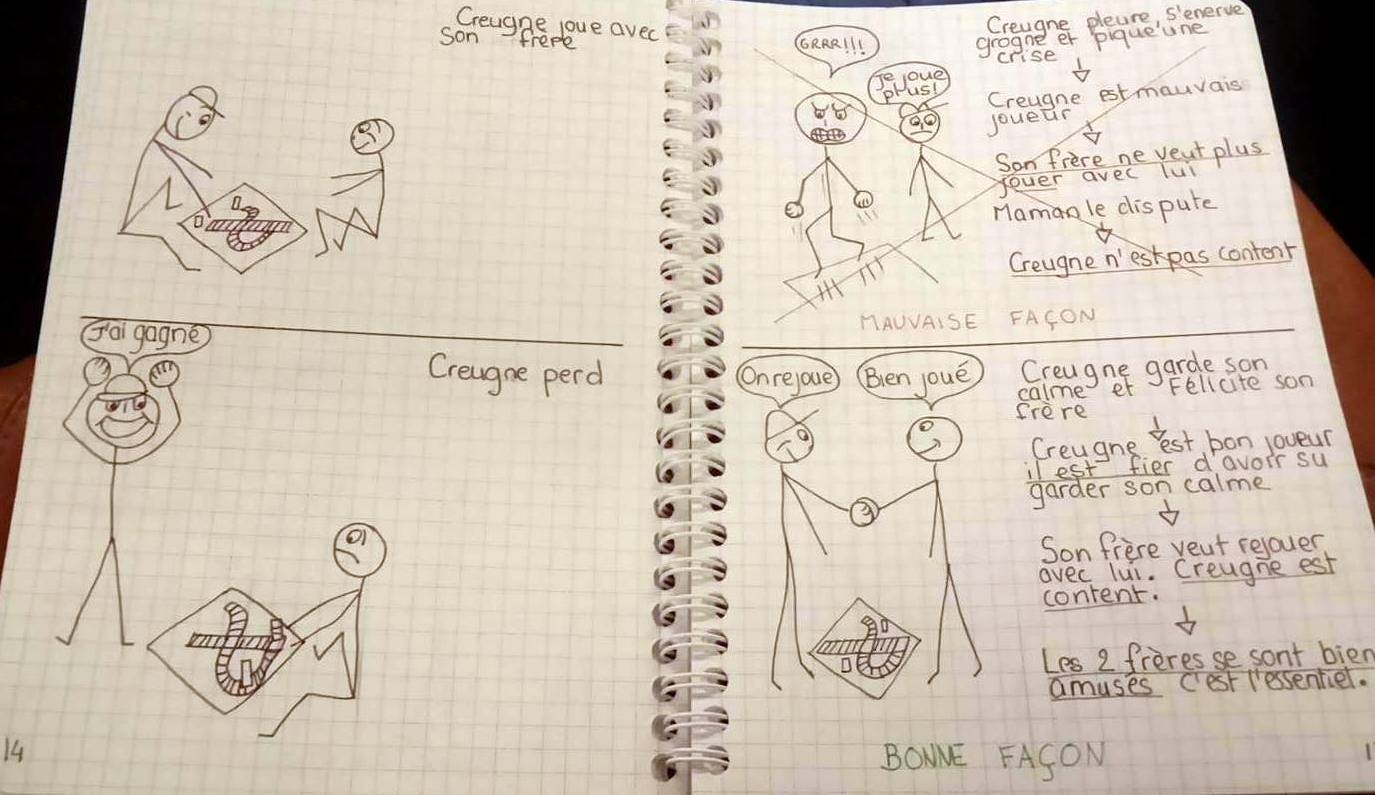 Creugne joue avec
son frère
J'ai gagné
Creugne perd
14
GRRR!!!
Je joue
plus!
Creugne pleure, s'enerve
grogne et pique une
crise
Creugne est mauvais
joueur
Son frère ne veut plus
jouer avec lui
Maman le dispute
Creugne n'est pas content
MAUVAISE FAÇON
On rejoue
Bien joué
Creugne garde son
calme et Félicite son
frère
Creugne est bon joueur
il est fier d'avoir su
garder son calme
Son frère veut rejouer
avec lui. Creugne est
content.
Les 2 frères se sont bien
amusés C'est l'essentiel.
BONNE FAÇON